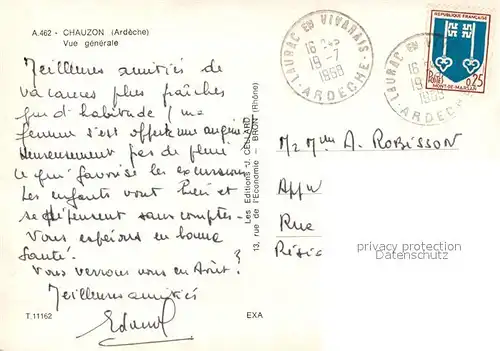 A.462 - CHAUZON (Ardèche)
Vue générale
Meilleures amitiés de
vacances plus fraîches
que d'habitude ! ma
femme s'est offert une angine
Heureusement pas de pluie
ce qui favorise les excursions
Les enfants vont bien et
se dépensent sans compter.
Vous espérons en bonne
santé.
Vous verrons nous en Août ?
Meilleures amitiés
T.11162
EXA
Les Editions "J. CELLARD"
13, rue de l'Economie - BRON (Rhône)
LAURAC EN VIVARAIS
16 H
19 -7
1968
ARDECHE
LAURAC EN VIV
16
19
1968
ARDECHE
REPUBLIQUE FRANÇAISE
Postes
0,25
MONT-DE-MARSAN
M. Mme A. ROBISSON
App
Rue
Résid
privacy protection
Datenschutz